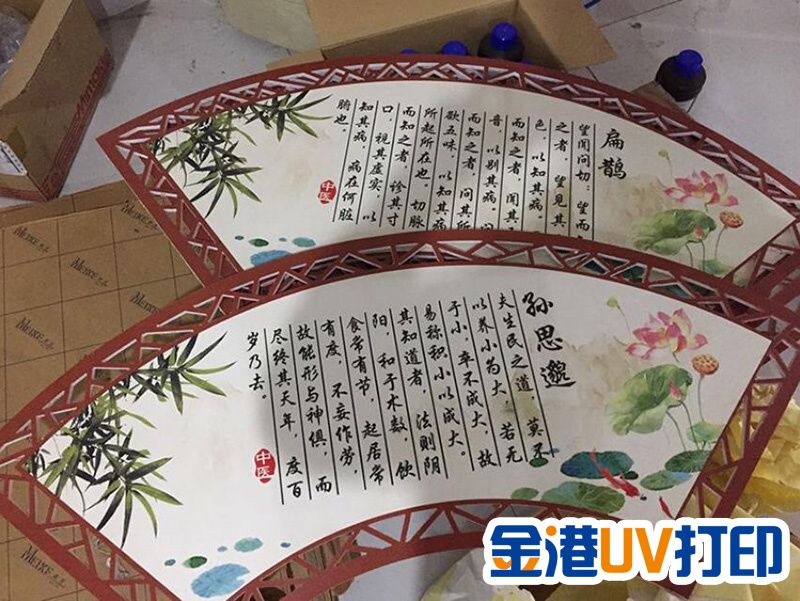 扁鹊
望闻问切：望而
之者，望见其
色，以知其病。
而知之者，闻其
音，以别其病。问
而知之者，问其所
欲五味，以知其病
所起所在也。切脉
而知之者，诊其寸
口，视其虚实，以
知其病，病在何脏
腑也。
中医
孙思邈
夫生民之道，莫不
以养小为大，若无
于小，卒不成大，故
易称积小以成大。
其知道者，法则阴
阳，和于术数，饮
食常有节，起居常
有度，不妄作劳，
故能形与神俱，而
尽终其天年，度百
岁乃去。
中医
金港UV打印